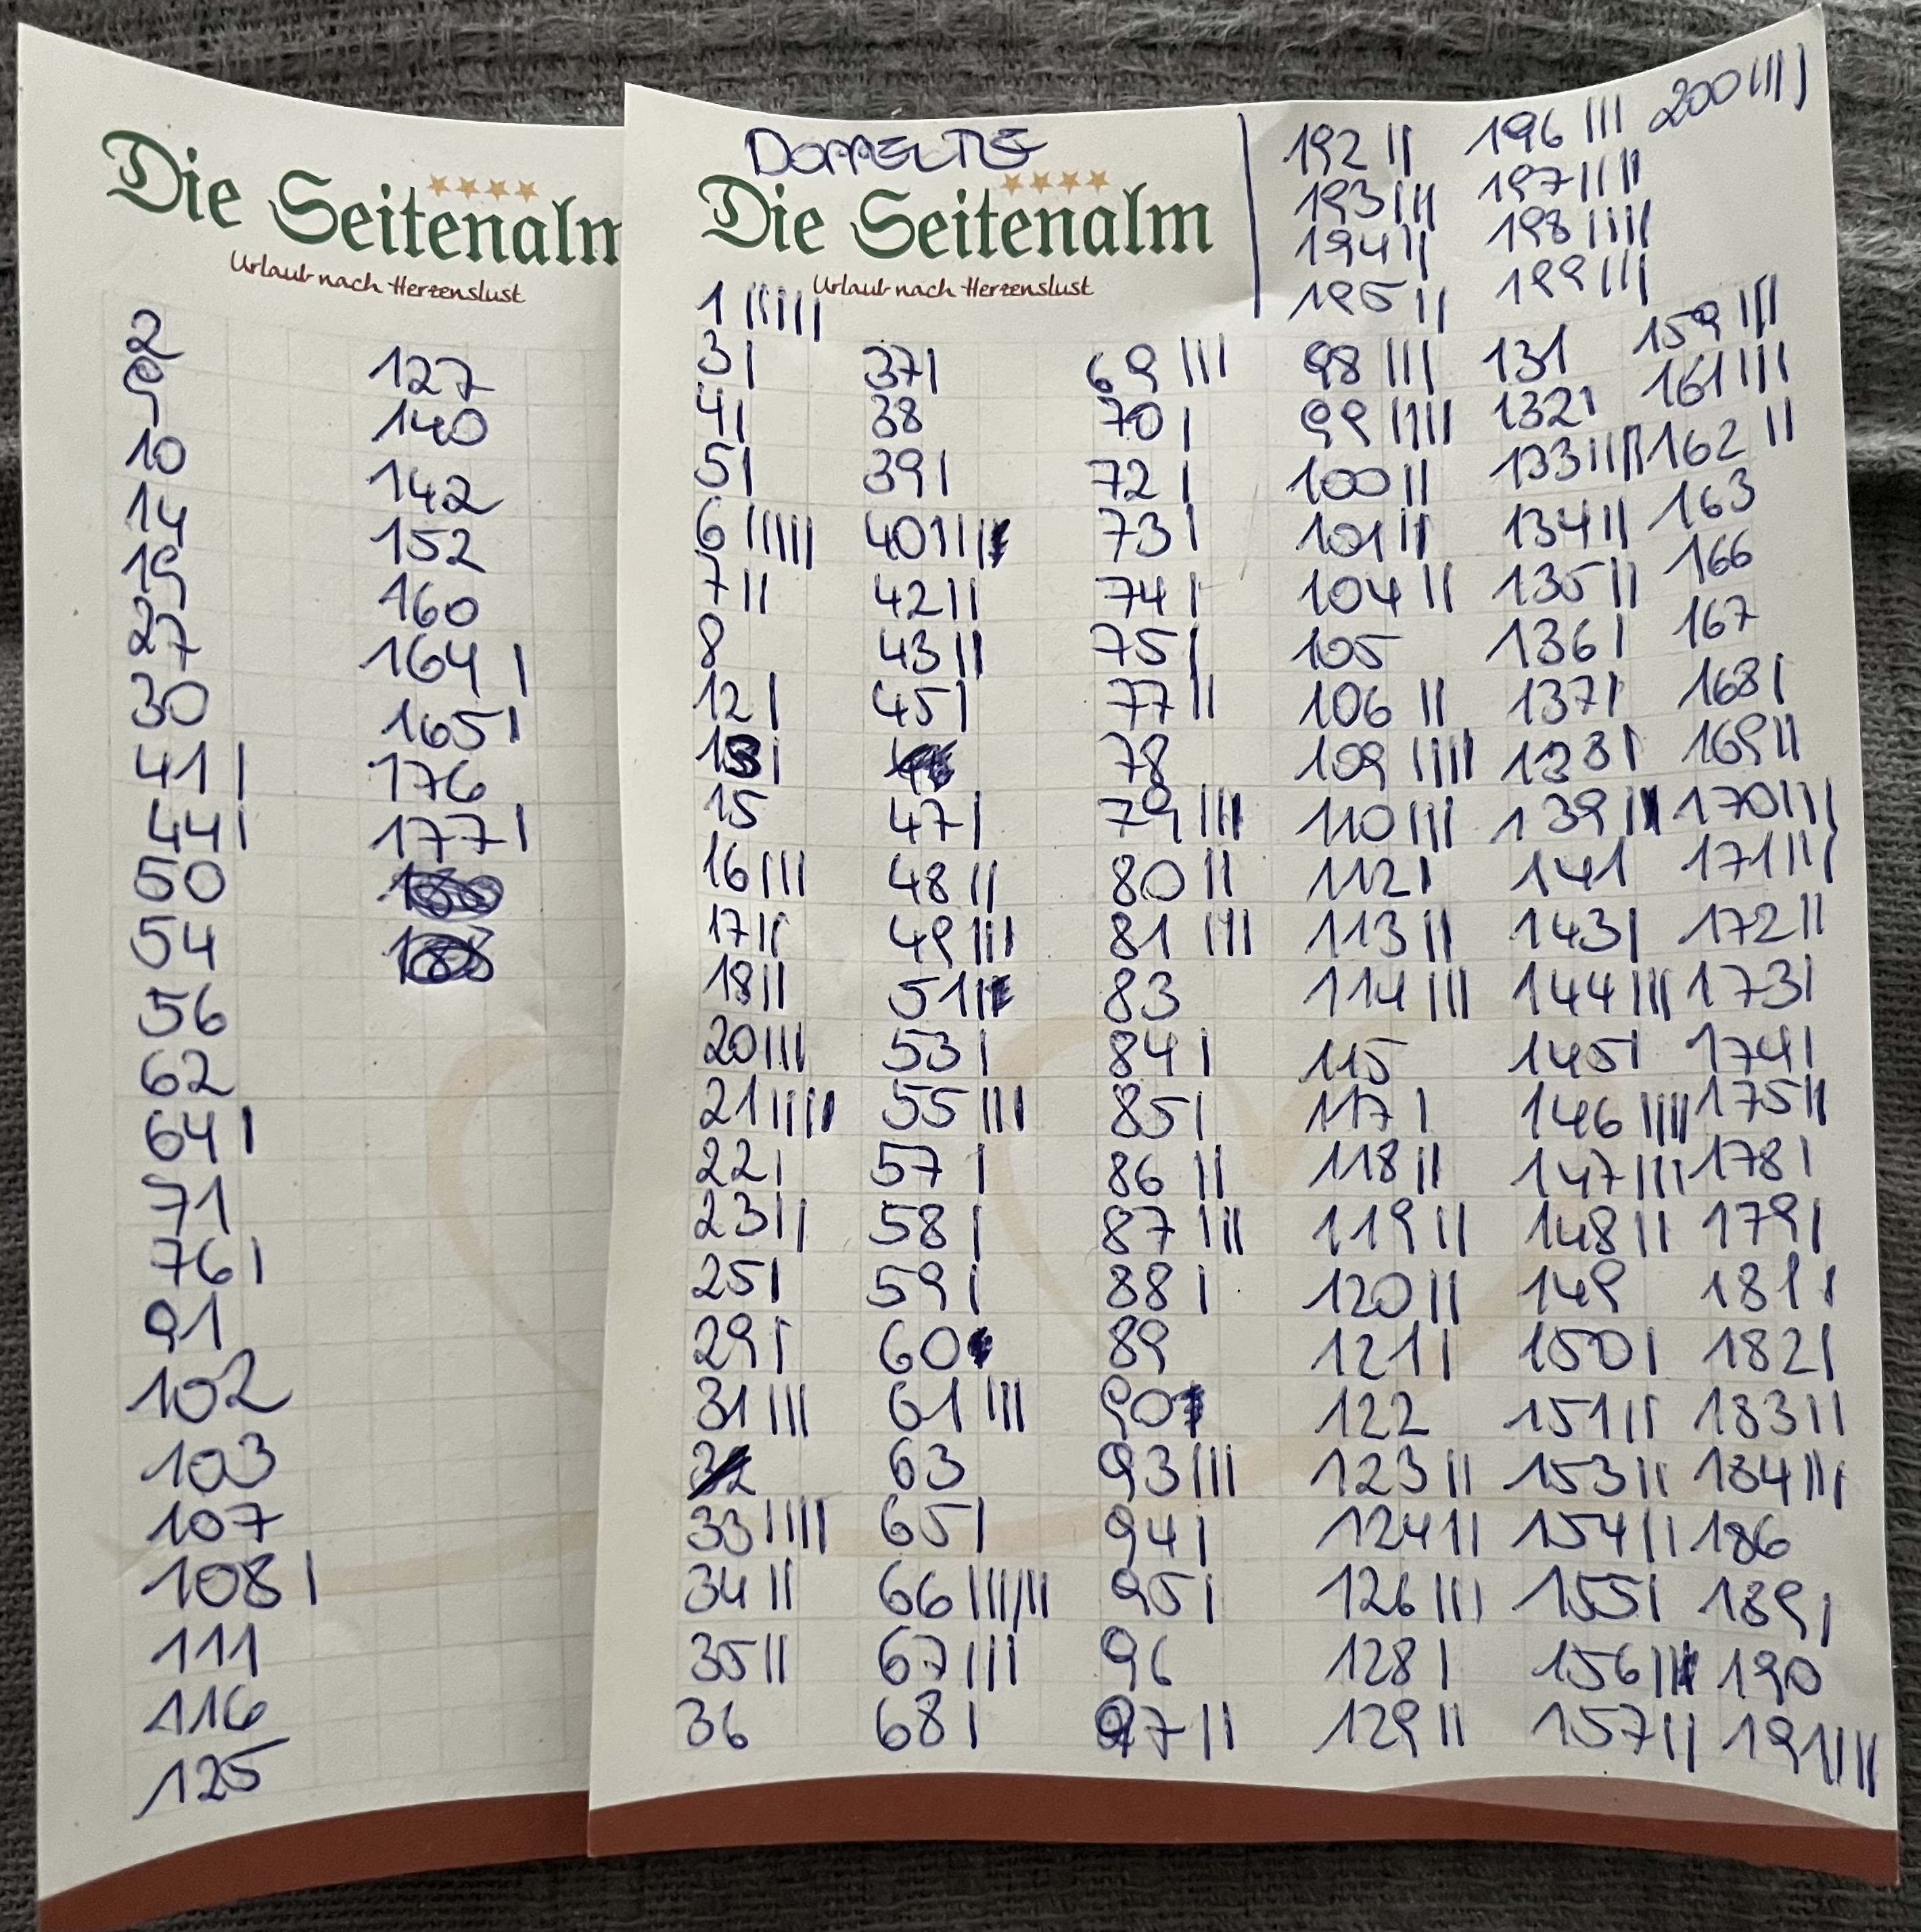 Die Seitenalm
Urlaub nach Herzenslust
2
9
10
14
19
27
30
41 |
44 |
50
54
56
62
64 |
71
76 |
91
102
103
107
108 |
111
116
125
127
140
142
152
160
164 |
165 |
176
177 |
DOPPELTE
Die Seitenalm
Urlaub nach Herzenslust
192 ||
193 |||
194 ||
195 ||
196 |||
197 ||||
198 ||||
199 |||
200 ||||
1 ||||||
3 |
4 |
5 |
6 |||||
7 ||
8
12 |
13 |
15
16 |||
17 ||
18 ||
20 |||
21 ||||
22 |
23 ||
25 |
29 |
31 |||
33 ||||
34 ||
35 ||
36
37 |
38
39 |
40 ||||
42 ||
43 ||
45 |
47 |
48 ||
49 |||
51 ||
53 |
55 |||
57 |
58 |
59 |
60
61 |||
63
65 |
66 ||||||
67 |||
68 |
69 |||
70 |
72 |
73 |
74 |
75 |
77 ||
78
79 |||
80 ||
81 |||
83
84 |
85 |
86 ||
87 |||
88 |
89
90
93 |||
94 |
95 |
96
97 ||
98 |||
99 ||||
100 ||
101 ||
104 ||
105
106 ||
109 ||||
110 |||
112 |
113 ||
114 |||
115
117 |
118 ||
119 ||
120 ||
121 |
122
123 ||
124 ||
126 |||
128 |
129 ||
131
132 |
133 ||||
134 ||
135 ||
136 |
137 |
138 |
139 ||
141
143 |
144 |||
145 |
146 ||||
147 |||
148 ||
149
150 |
151 ||
153 ||
154 ||
155 |
156 ||
157 ||
159 |||
161 |||
162 ||
163
166
167
168 |
169 ||
170 |||
171 |||
172 ||
173 |
174 |
175 ||
178 |
179 |
181 |
182 |
183 ||
184 |||
186
189 |
190
191 ||||